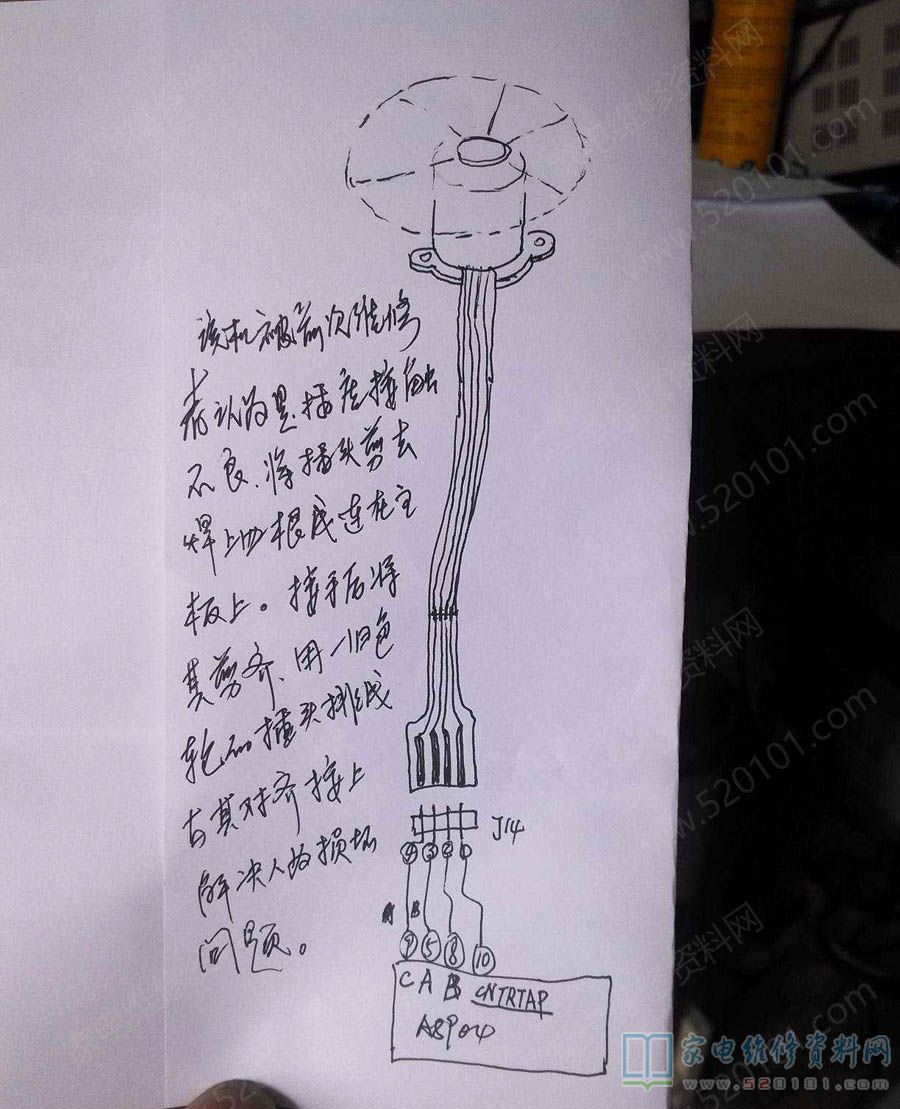 该机被前次维修
者认为是插座接触
不良、将插头剪去
焊上四根线连在主
板上。接手后将
其剪齐、用一旧色
轮的插头排线
与其对齐接上
解决人为损坏
问题。
J14
④ ③ ② ①
A B
⑦ ⑤ ⑧ ⑩
C A B CNTRTAP
A8904
家电维修资料网
www.520101.com